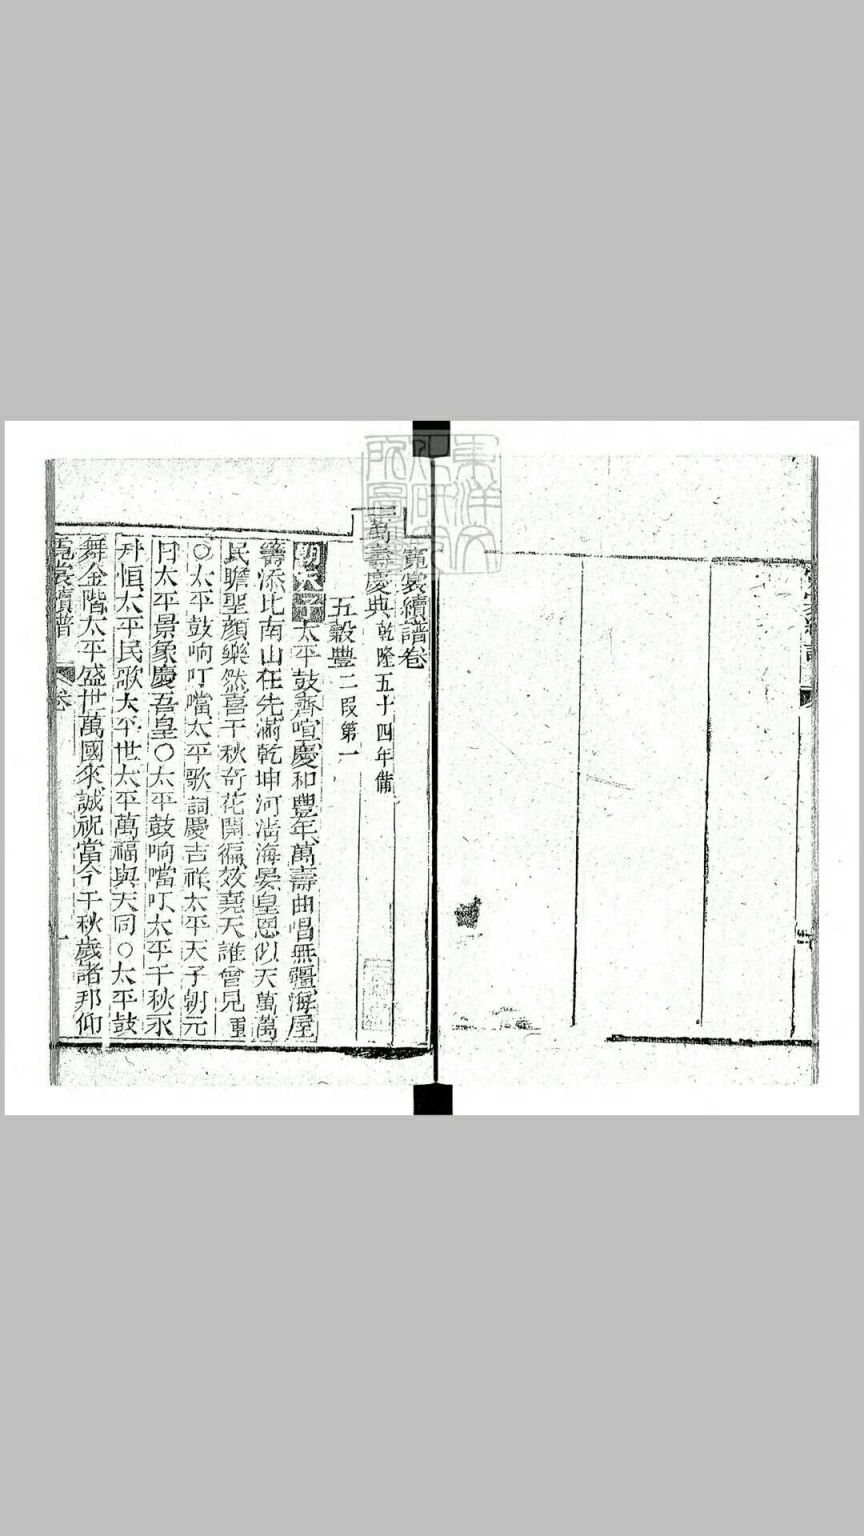 霓裳續譜卷
萬壽慶典乾隆五十四年備
五穀豐二段第一
太平鼓齊喧慶和豐年萬壽曲唱無疆海屋
籌添比南山在先滿乾坤河淸海晏皇恩似天萬萬
民瞻聖顏樂然喜千秋奇花開徧效堯天誰曾見重
○太平鼓响叮噹太平歌詞慶吉祥太平天子朝元
日太平景象慶吾皇○太平鼓响噹叮太平千秋永
升恒太平民歌太平世太平萬福與天同○太平鼓
舞金階太平盛世萬國來誠祝當今千秋歲諸邦仰
霓裳續譜 卷 一